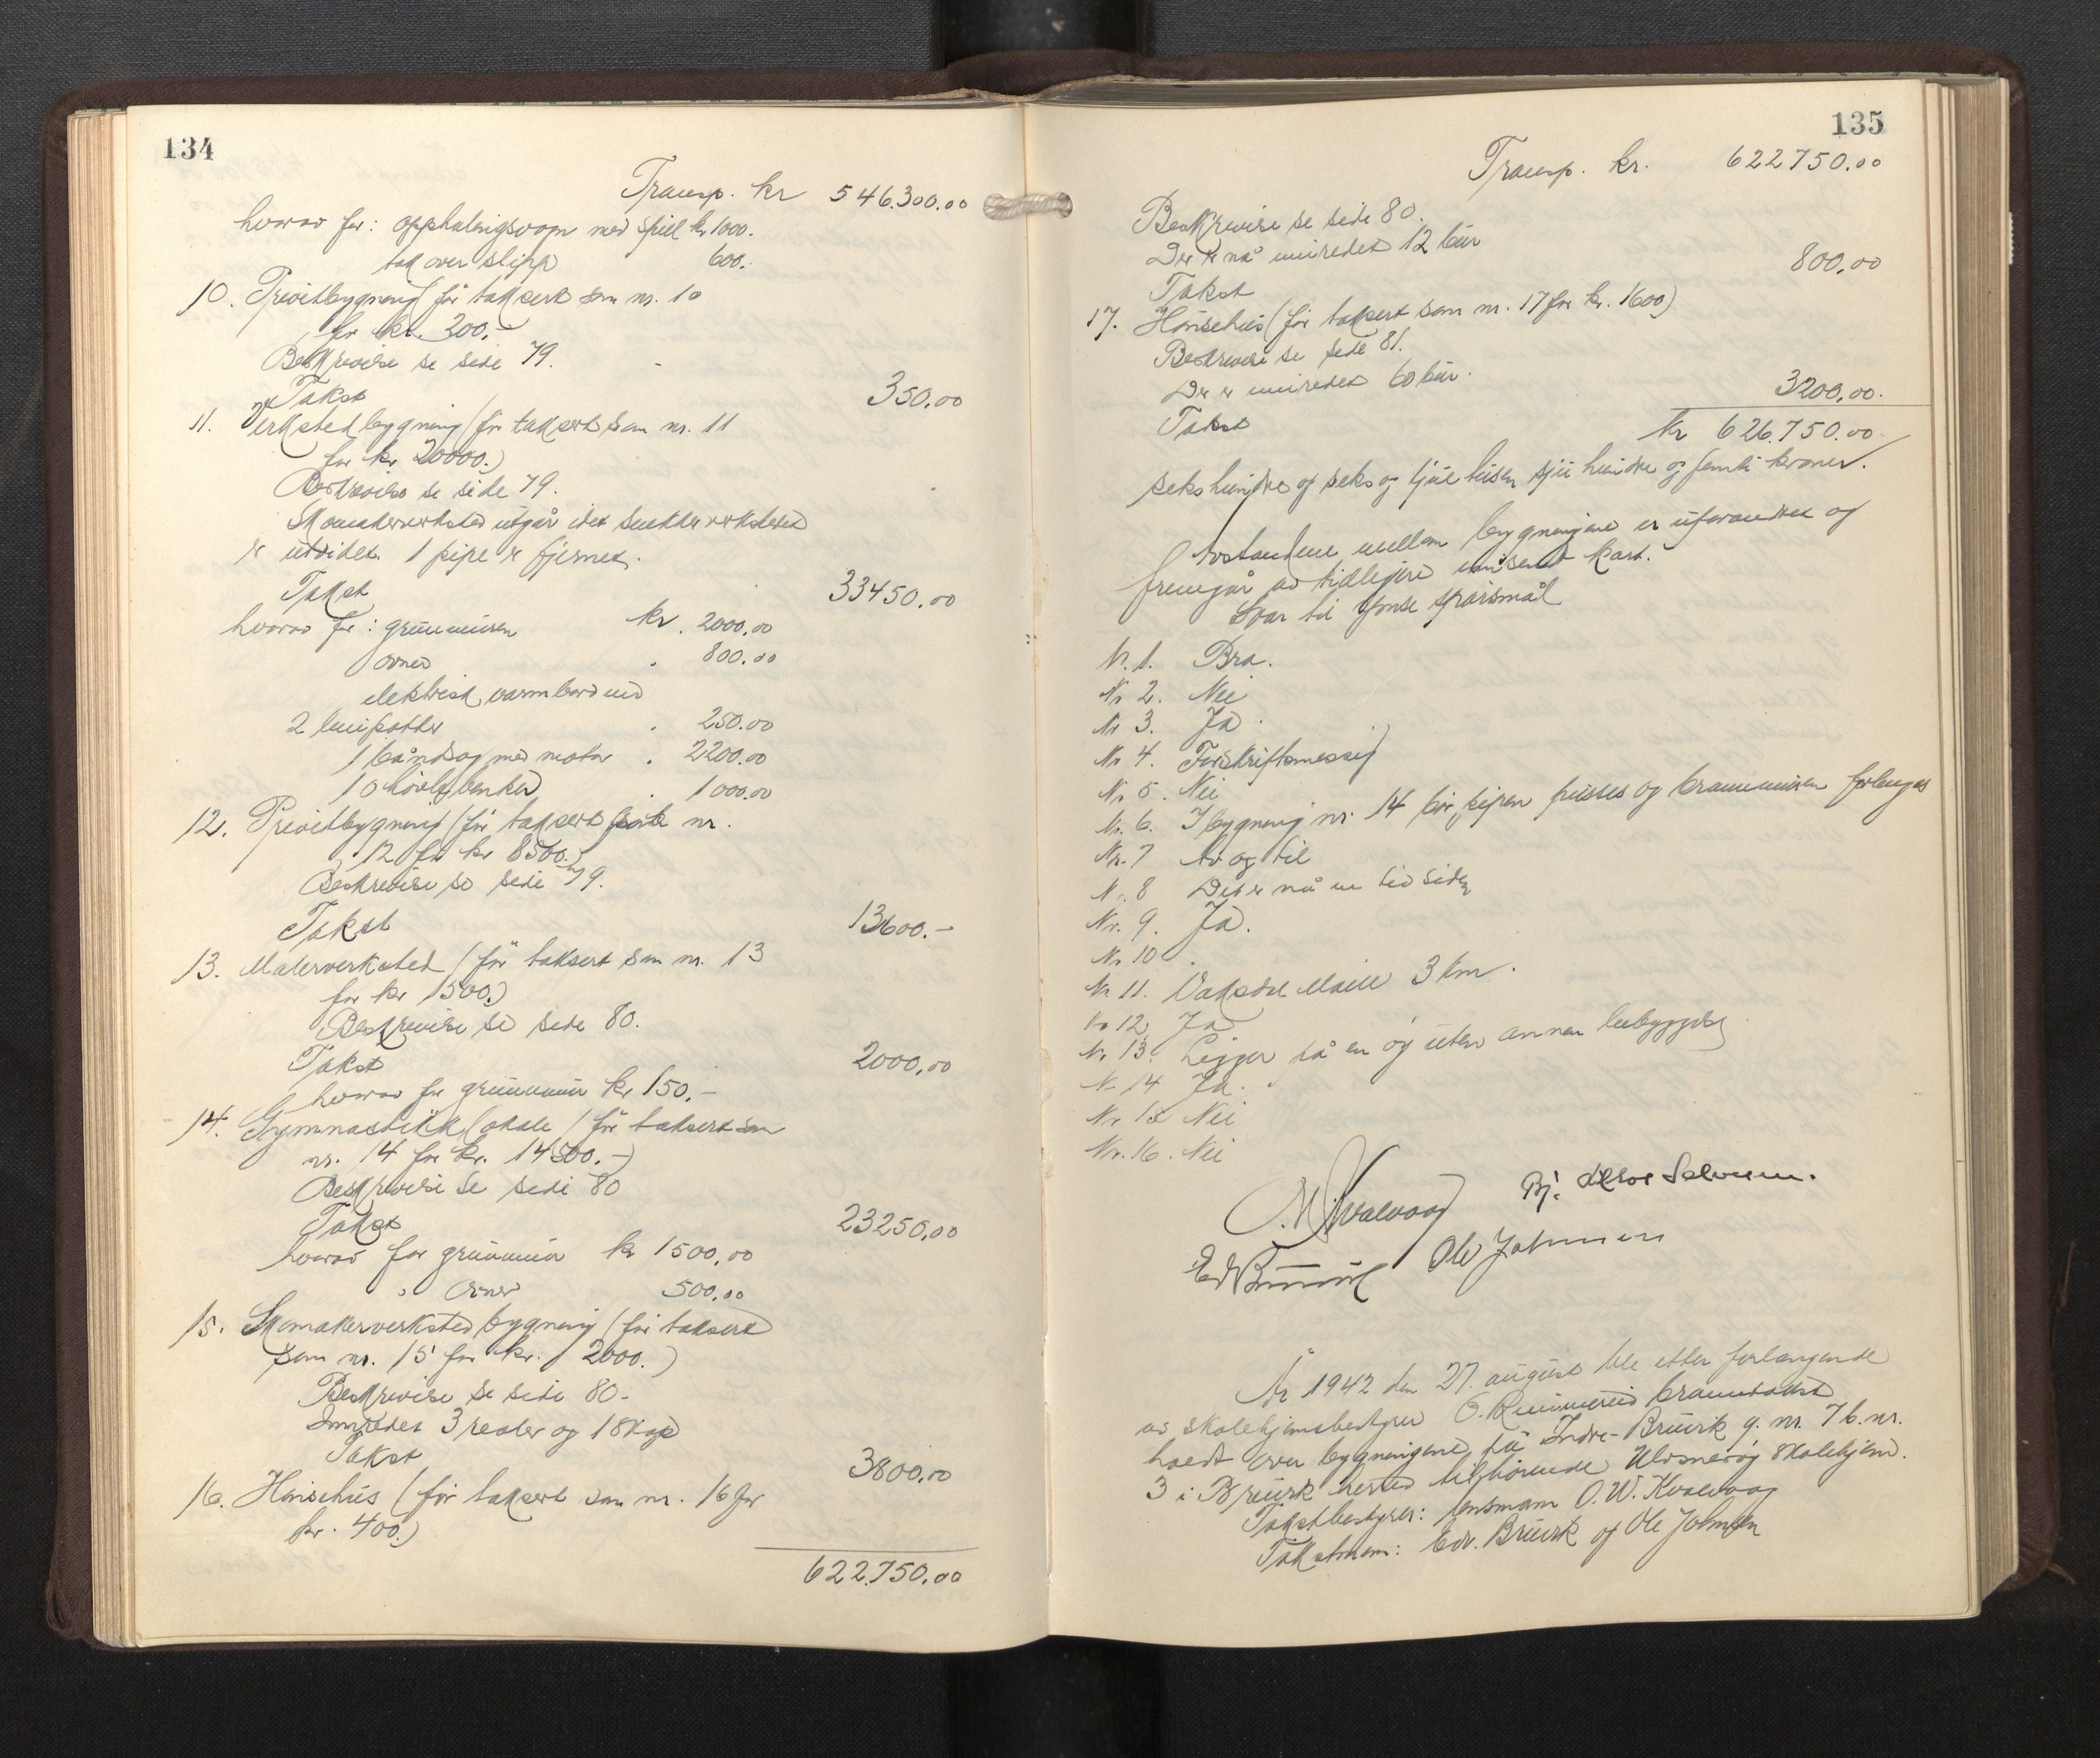 134
Transp. kr 546.300.00
hvorav for: opphalingsvogn med spill kr 1000.
tak over slipp 600.-
10. Privitbygning (før taksert som nr. 10
for kr. 200.-
Beskrivelse se side 79.
Takst 350.00
11. Verkstedbygning (før taksert som nr. 11
for kr 20000.)
Beskrivelse se side 79.
Skomakerverksted utgår idet snekkerverkstedet
er utvidet. 1 pipe er fjernet.
Takst 33450.00
hvorav for: grunnmuren kr. 2000.00
ovner " 800.00
elektrisk varmbord med
2 limpotter " 250.00
1 båndsag med motor " 2200.00
10 høvlebenker " 1000.00
12. Privitbygning (før taksert som nr.
12 for kr 8500.-)
Beskrivelse se side 79.
Takst 13600.-
13. Malerverksted (før taksert som nr. 13
for kr 1500.)
Beskrivelse se side 80.
Takst 2000.00
hvorav for grunnmur kr 150.-
14. Gymnastikklokale (før taksert som
nr. 14 for kr. 14500.-)
Beskrivelse se side 80
Takst 23250.00
hvorav for grunnmur kr 1500.00
" ovner 500.00
15. Skomakerverkstedbygning (før taksert
som nr. 15 for kr. 2000.)
Beskrivelse se side 80.
Innredet 3 reoler og 1 skap
Takst 3800.00
16. Hønsehus (før taksert som nr. 16 for
kr. 400.)
622.750.00
135
Transp. kr. 622750.00
Beskrivelse se side 80.
Der er nå innredet 12 bur
Takst 800.00
17. Hønsehus (før taksert som nr. 17 for kr. 1600)
Beskrivelse se side 81.
Der er innredet 60 bur.
Takst 3200.00.
Kr 626.750.00
sekshundre og seks og tjue tusen sju hundre og femti kroner.
Avstandene mellem bygningene er uforandret og
fremgår av tidligere innsendt kart.
Svar til spørsmål
Nr. 1. Bra.
Nr 2. Nei
Nr 3. Ja.
Nr 4. Forskriftsmessig
Nr 5. Nei
Nr. 6. I bygning nr. 14 bør pipen pusses og brannmuren forlenges
Nr. 7 Av og til
Nr. 8 Det er nå en tid siden
Nr. 9. Ja.
Nr. 10.
Nr 11. Vaksdal Mølle 3 km.
Nr 12. Ja
Nr 13. Ligger på en øy uten annen bebyggelse
Nr 14 Ja.
Nr 15 Nei
Nr. 16. Nei
O. W. Kvalvaag
Ole Johnsen
År 1942 den 27. august ble etter forlangende
av skolehjemsbestyrer O. Rimmereid branntakst
holdt over bygningene på Indre-Bruvik g. nr. 7 b. nr.
3 i Bruvik herred tilhørende Ulvsnesøy skolehjem.
Takstbestyrer: lensmann O. W. Kvalvaag
Takstmenn: Edv. Bruvik og Ole Johnsen